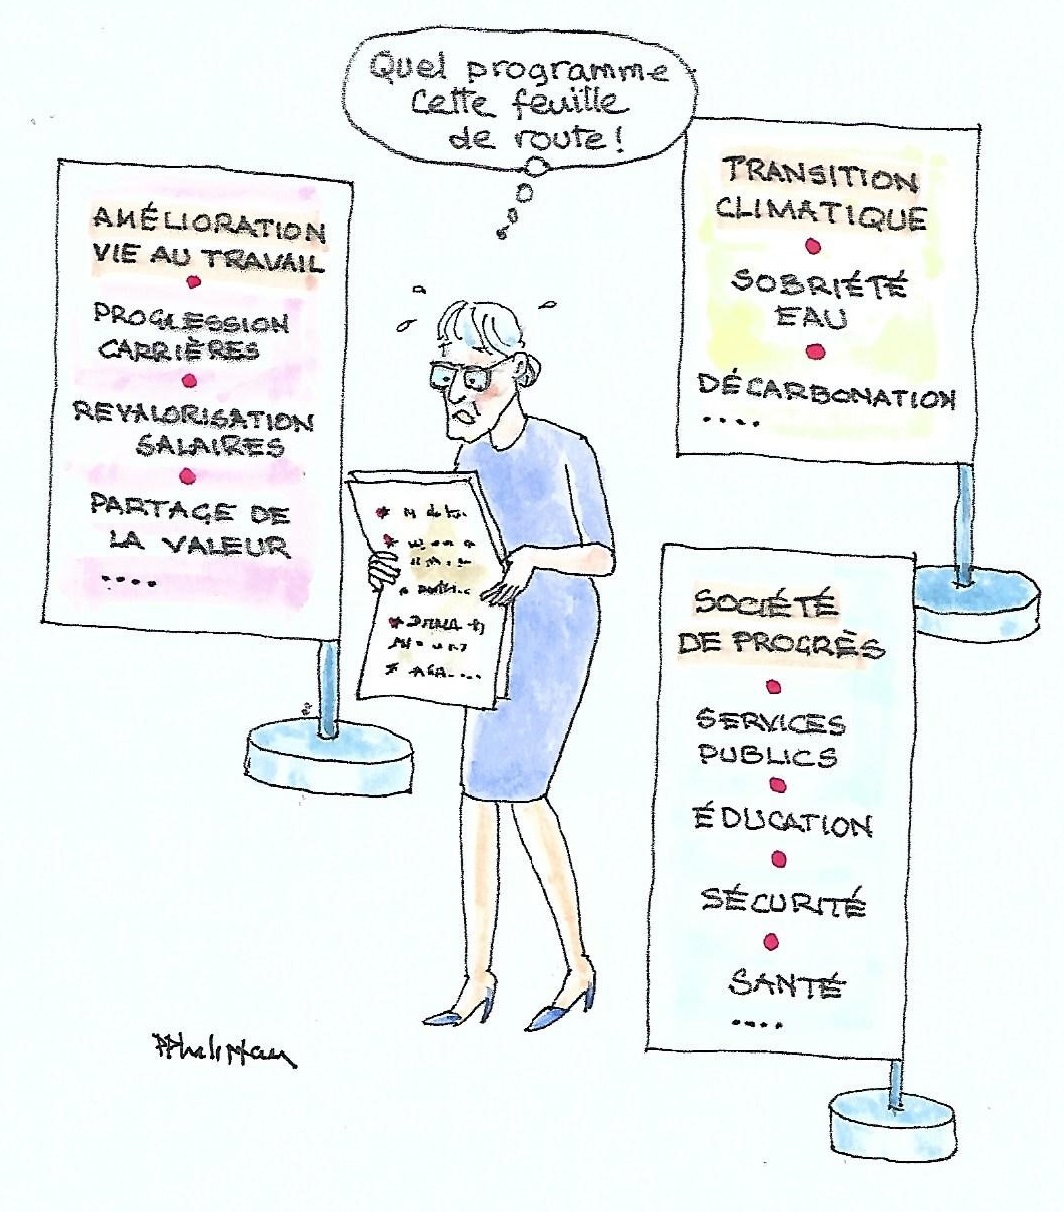 Quel programme
cette feuille
de route !
AMÉLIORATION
VIE AU TRAVAIL
PROGRESSION
CARRIÈRES
REVALORISATION
SALAIRES
PARTAGE DE
LA VALEUR
....
TRANSITION
CLIMATIQUE
SOBRIÉTÉ
EAU
DÉCARBONATION
....
SOCIÉTÉ
DE PROGRÈS
SERVICES
PUBLICS
ÉDUCATION
SÉCURITÉ
SANTÉ
....